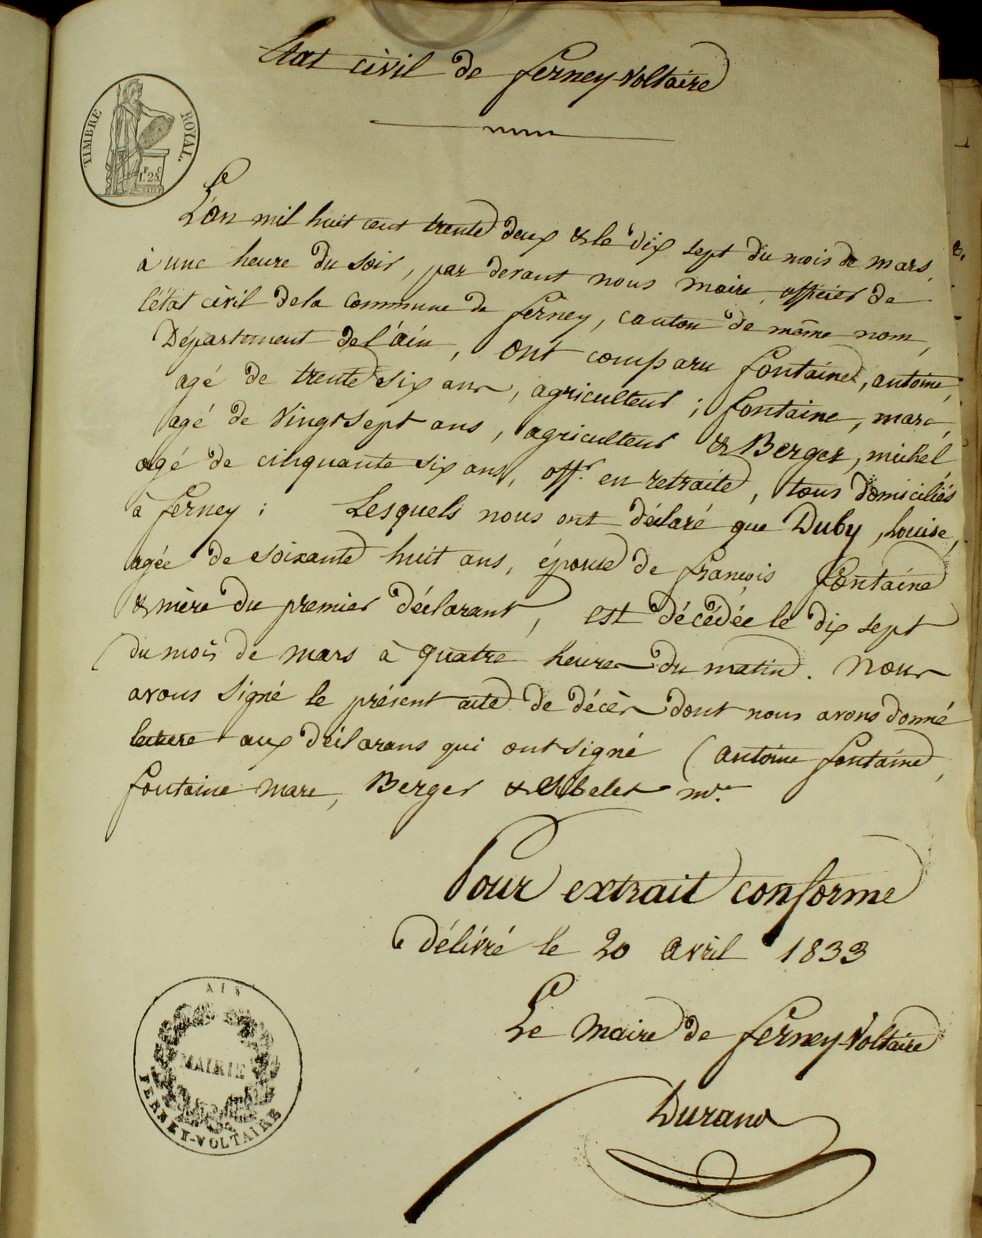 Etat civil de Ferney-Voltaire
TIMBRE ROYAL.
1.25
L'an mil huit cent trente deux & le dix sept du mois de mars,
à une heure du soir, par devant nous maire, officier de
l'état civil de la Commune de ferney, canton de même nom,
Département de l'ain, ont comparu fontaine, antoine,
agé de trente six ans, agriculteur ; fontaine, marc,
agé de vingt sept ans, agriculteur & Berger, michel
agé de cinquante six ans, offr. en retraite, tous domiciliés
à ferney : Lesquels nous ont déclaré que Duby, Louise,
agée de soixante huit ans, épouse de françois fontaine
& mère du premier déclarant, est décédée le dix sept
du mois de mars à quatre heures du matin. Nous
avons signé le présent acte de décès dont nous avons donné
lecture aux déclarans qui ont signé (antoine fontaine,
fontaine marc, Berger & mre.
Pour extrait conforme
Délivré le 20 avril 1833
Le Maire de Ferney-Voltaire
Durand
AIN
MAIRIE
FERNEY-VOLTAIRE